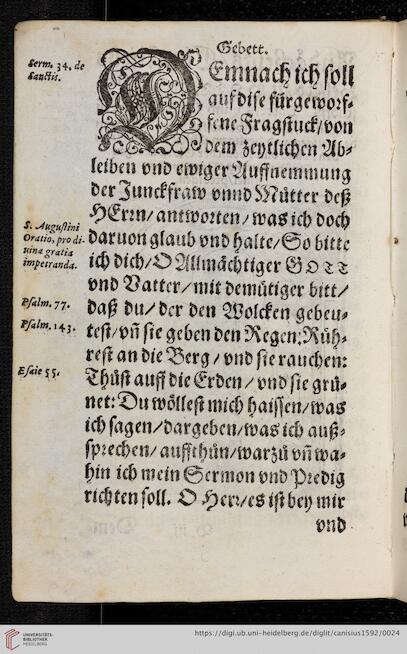 Gebett.
Serm. 34. de
Sanctis.
DEmnach ich soll
auf dise fürgeworf⸗
fene Fragstuck/von
dem zeytlichen Ab⸗
leiben vnd ewiger Auffnemmung
der Junckfraw vnnd Mütter deß
HErrn/ antworten/ was ich doch
S. Augustini
Oratio, pro di-
uina gratia
impetranda.
daruon glaub vnd halte/ So bitte
ich dich/ O Allmächtiger GOTT
vnd Vatter/ mit demütiger bitt/
Psalm. 77.
daß du/ der den Wolcken gebeu⸗
Psalm. 143.
test/ vñ sie geben den Regen: Rüh⸗
rest an die Berg/ vnd sie rauchen:
Esaie 55.
Thüst auff die Erden/ vnd sie grü⸗
net: Du wöllest mich haissen/ was
ich sagen/ dargeben/ was ich auß⸗
sprechen/ auffthün/ warzü vñ wa⸗
hin ich mein Sermon vnd Predig
richten soll. O Herr/ es ist bey mir
vnd
UNIVERSITÄTS-
BIBLIOTHEK
HEIDELBERG
https://digi.ub.uni-heidelberg.de/diglit/canisius1592/0024